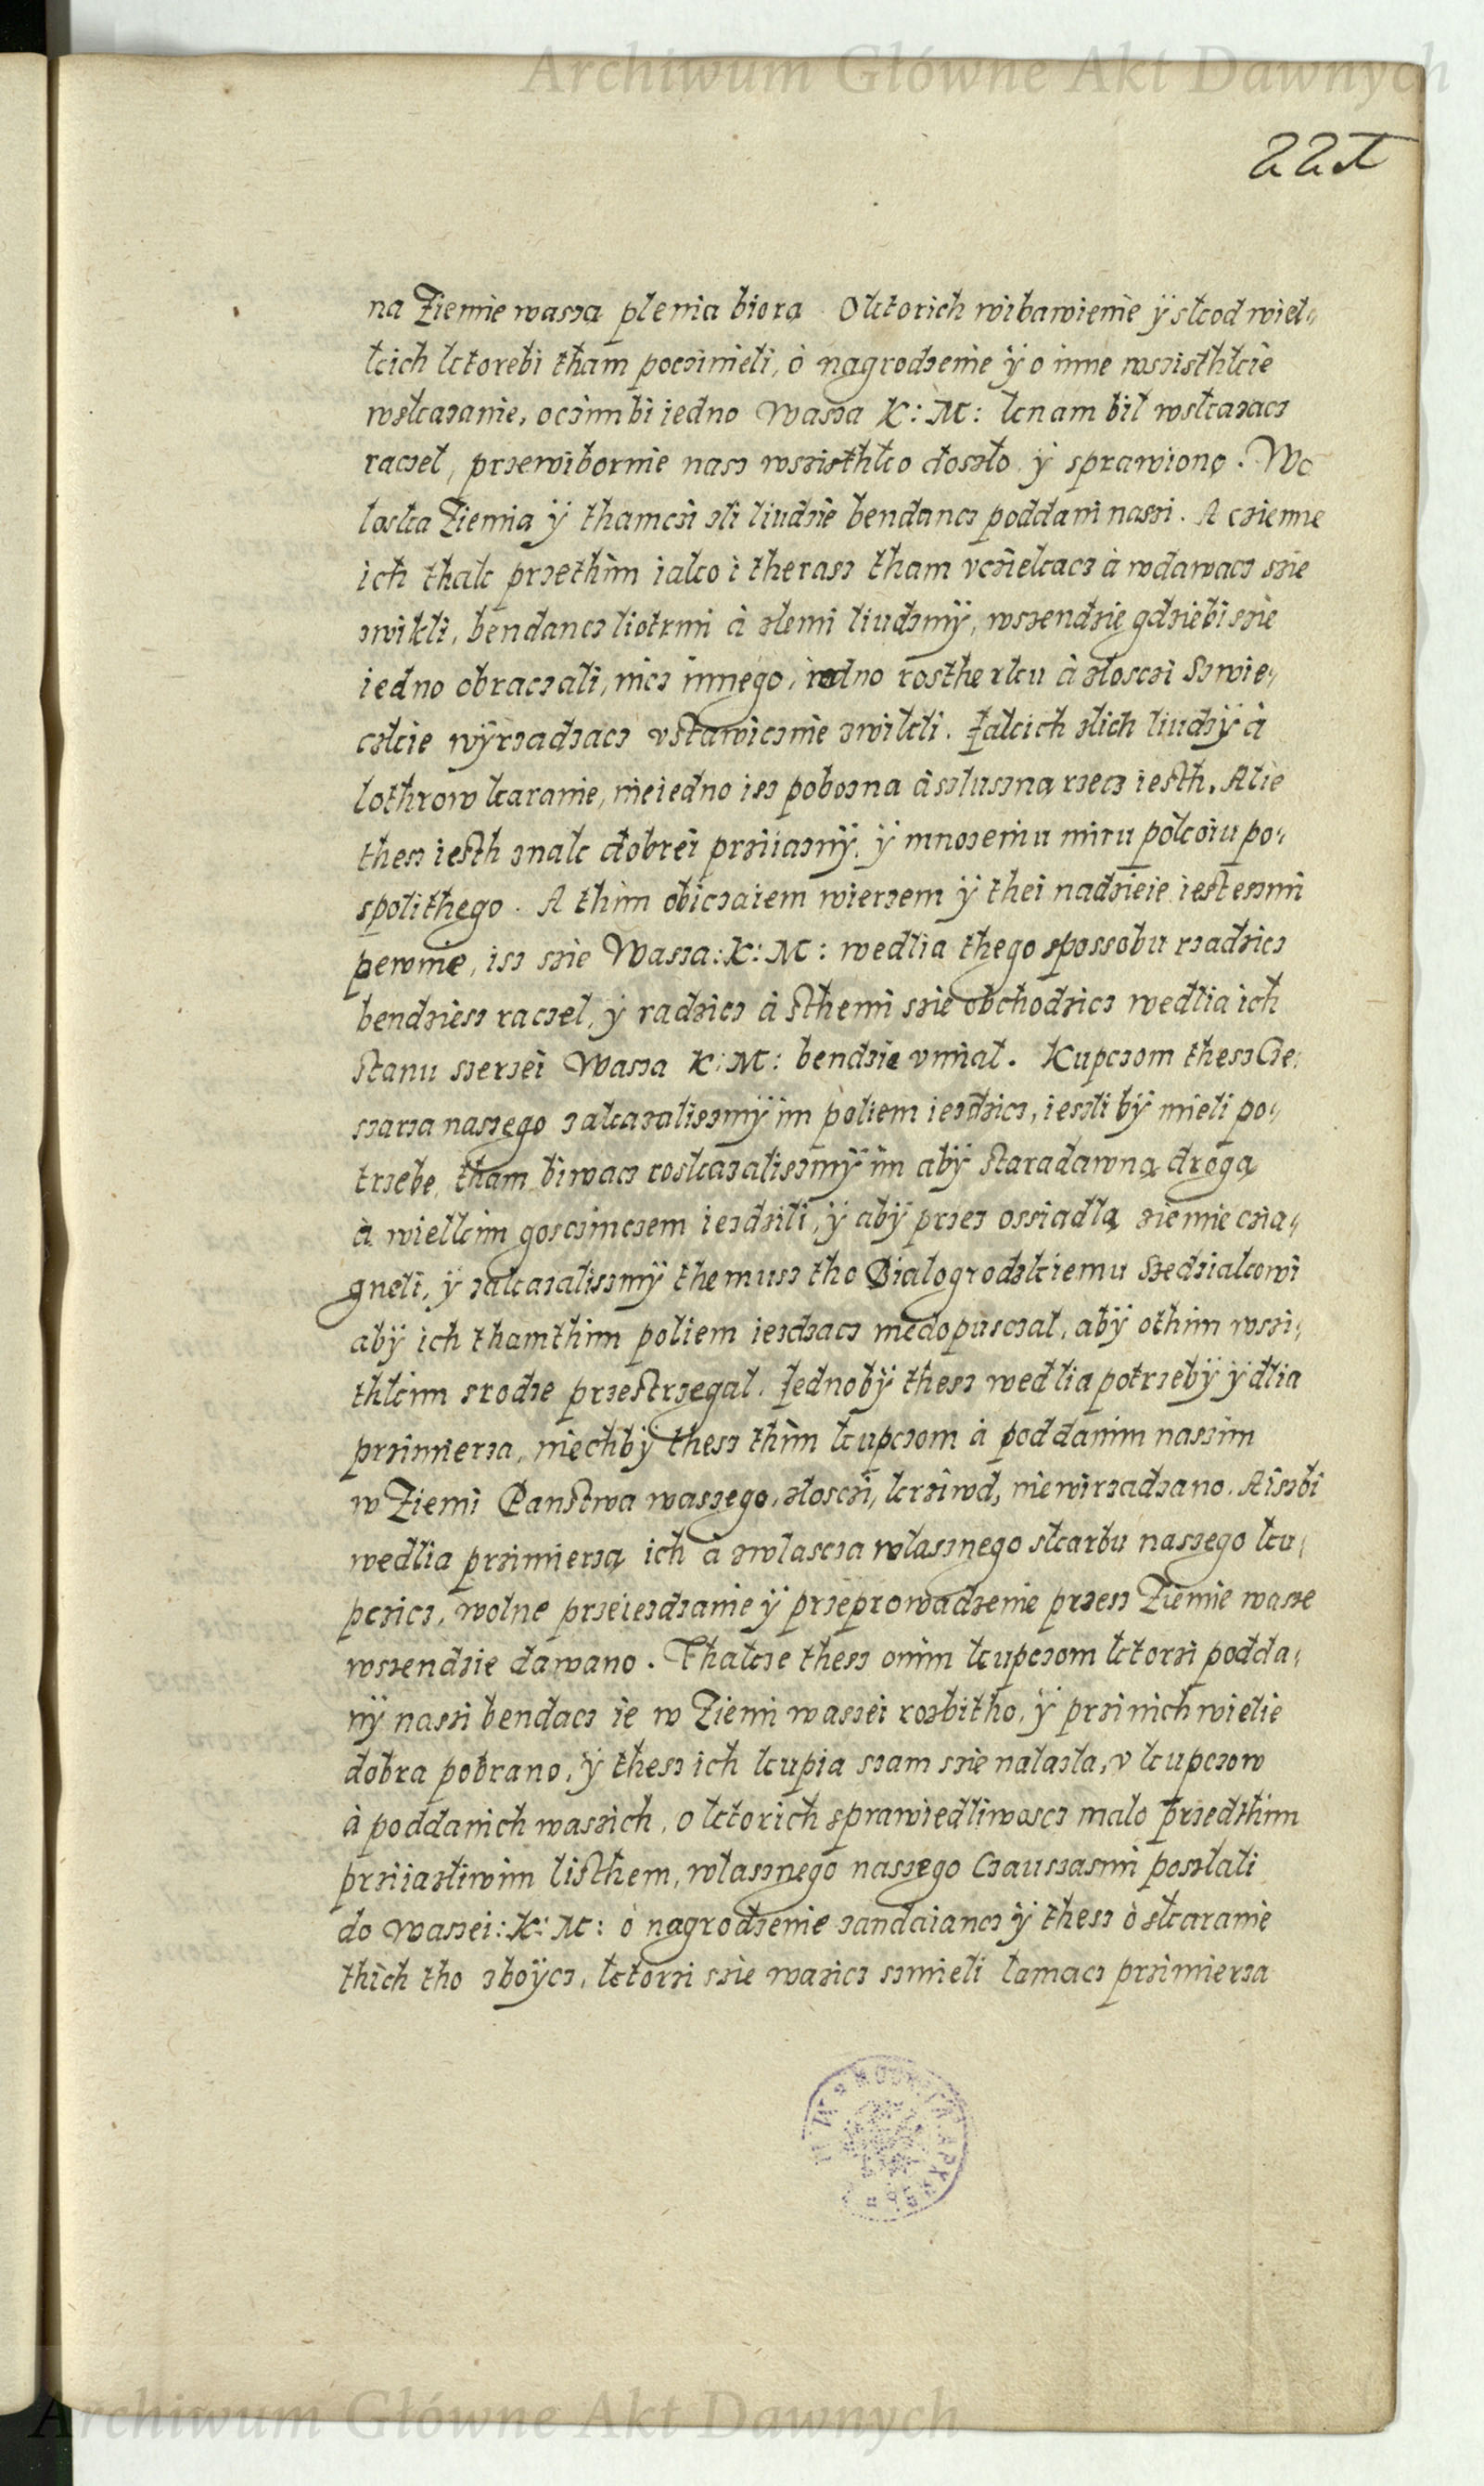 Archiwum Główne Akt Dawnych
221
na Ziemie wasza plenia biora. O ktorich wibawienie ÿ skod wiel-
kich ktorebi tham poczinieli, o nagrodzenie ÿ o inne wszisthkie
wskazanie, oczimbi iedno Wasza K: M: knam bil wskazacz
raczel, przewibornie nasz wszisthko doszło ÿ sprawiono. Wo
loska Ziemia ÿ thamczi zli liudzie bendancz poddani naszi. A czienne
ich thak przethim iako i therasz tham vcziekacz à wdawacz szie
zwikli, bendancz liotrmi à zlemi liudzmÿ, wszendzie gdziebi szie
iedno obraczali, nicz innego, iedno rostherku à złosczi Szwie-
czkie wÿrzadzacz vstawicznie zwikli. Jakich zlich liudzÿ à
lothrow karanie, nieiedno isz pobozna à szluszna rzecz iesth. Alie
thesz iesth znak dobrei prziiaznÿ, ÿ mnozeniu miru pokoiu po-
spolithego. A thim obiczaiem wierzem ÿ thei nadzieie iesteszmi
pewnie, isz szie Wasza: K: M: wedlia thego spossobu rzadzicz
bendziesz raczel, ÿ radzicz à sthemi szie obchodzicz wedlia ich
stanu szerzei Wasza K: M: bendzie vmial. Kupczom thesz Cze-
szarza naszego zakazaliszmÿ im poliem iezdzicz, ieszli bÿ mieli po-
trzebe, tham biwacz roskazaliszmÿ im abÿ staradawną drogą
à wielkim gosczinczem iezdzili, ÿ abÿ przez ossiadlą ziemie czią-
gneli, ÿ zakazaliszmÿ themusz tho Bialogrodzkiemu Szedziakowi
abÿ ich thamthim poliem iezdzacz niedopusczal, abÿ othim wszi-
thkim srodze przestrzegal. Jednobÿ thesz wedlia potrzebÿ ÿ dlia
przimierza, niechbÿ thesz thim kupczom à poddanim naszim
w Ziemi Panstwa waszego, złosczi, krziwd, niewirzadzano. A iszbi
wedlia przimierza ich à zwlascza wlasznego skarbu naszego ku-
pczicz, wolne przeiezdzanie ÿ przeprowadzenie przesz Ziemie wasze
wszendzie dawano. Thakze thesz onim kupczom ktorzi podda-
nÿ naszi bendacz ie w Ziemi waszei rozbitho, ÿ przi nich wielie
dobra pobrano, ÿ thesz ich kupia szam szie nalazla, v kupczow
à poddanich waszich, o ktorich sprawiedliwoscz malo przedthim
prziiazliwim listhem, wlasznego naszego Czauszasmi poszlali
do waszei: K: M: o nagrodzenie zandaiancz ÿ thesz o skaranie
thich tho zboÿcz, ktorzi szie wazicz szmieli lamacz przimierza
Archiwum Główne Akt Dawnych